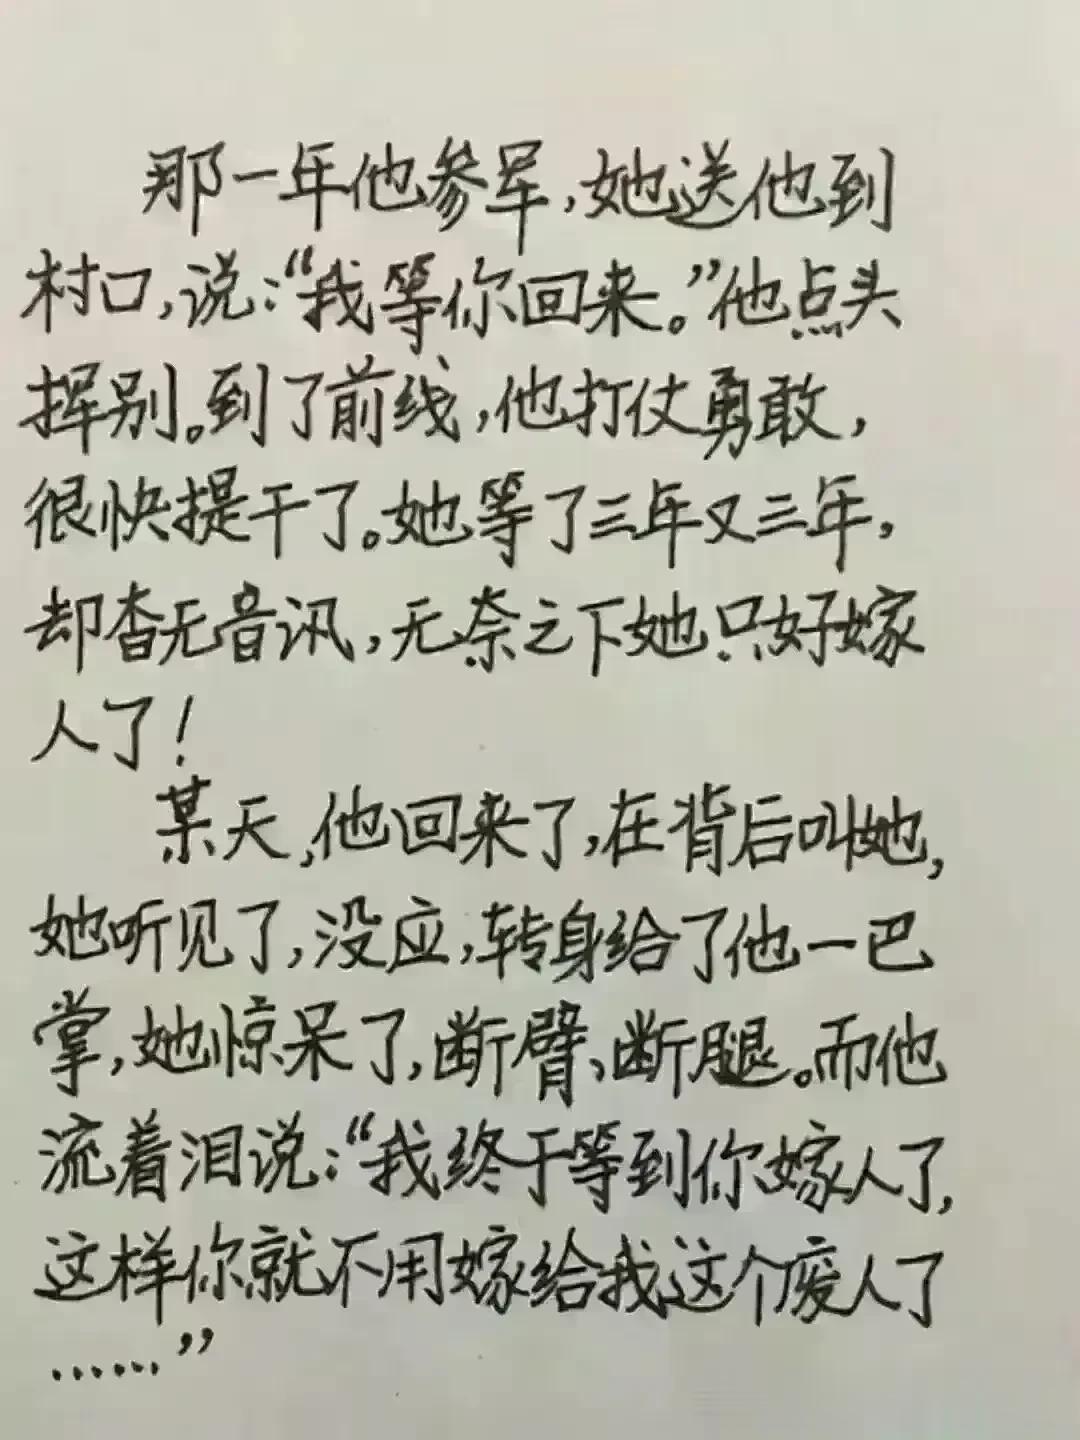 那一年他参军,她送他到
村口,说:“我等你回来。”他点头
挥别。到了前线,他打仗勇敢,
很快提干了。她等了三年又三年,
却杳无音讯,无奈之下她只好嫁
人了!
某天,他回来了,在背后叫她,
她听见了,没应,转身给了他一巴
掌,她惊呆了,断臂、断腿。而他
流着泪说:“我终于等到你嫁人了,
这样你就不用嫁给我这个废人了
……”